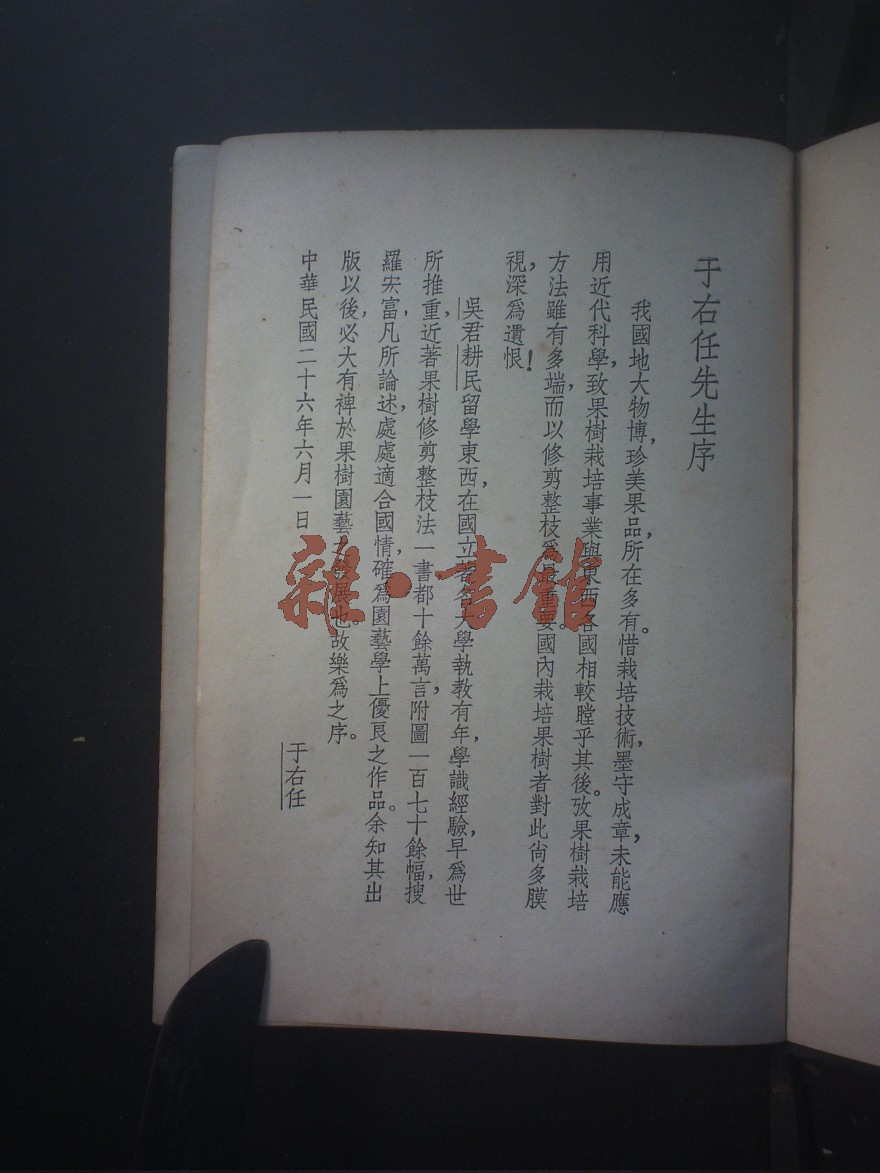 于右任先生序
我國地大物博，珍美果品，所在多有。惜栽培技術，墨守成章，未能應
用近代科學，致果樹栽培事業與東西各國相較，瞠乎其後。攷果樹栽培
方法雖有多端，而以修剪整枝爲最重要。國內栽培果樹者對此尙多膜
視，深爲遺恨！
吳君耕民留學東西，在國立著名大學執教有年，學識經驗，早爲世
所推重，近著果樹修剪整枝法一書都十餘萬言，附圖一百七十餘幅，搜
羅宏富，凡所論述，處處適合國情，確爲園藝學上優良之作品。余知其出
版以後，必大有裨於果樹園藝之發展也。故樂爲之序。
中華民國二十六年六月一日
于右任
雜·書館